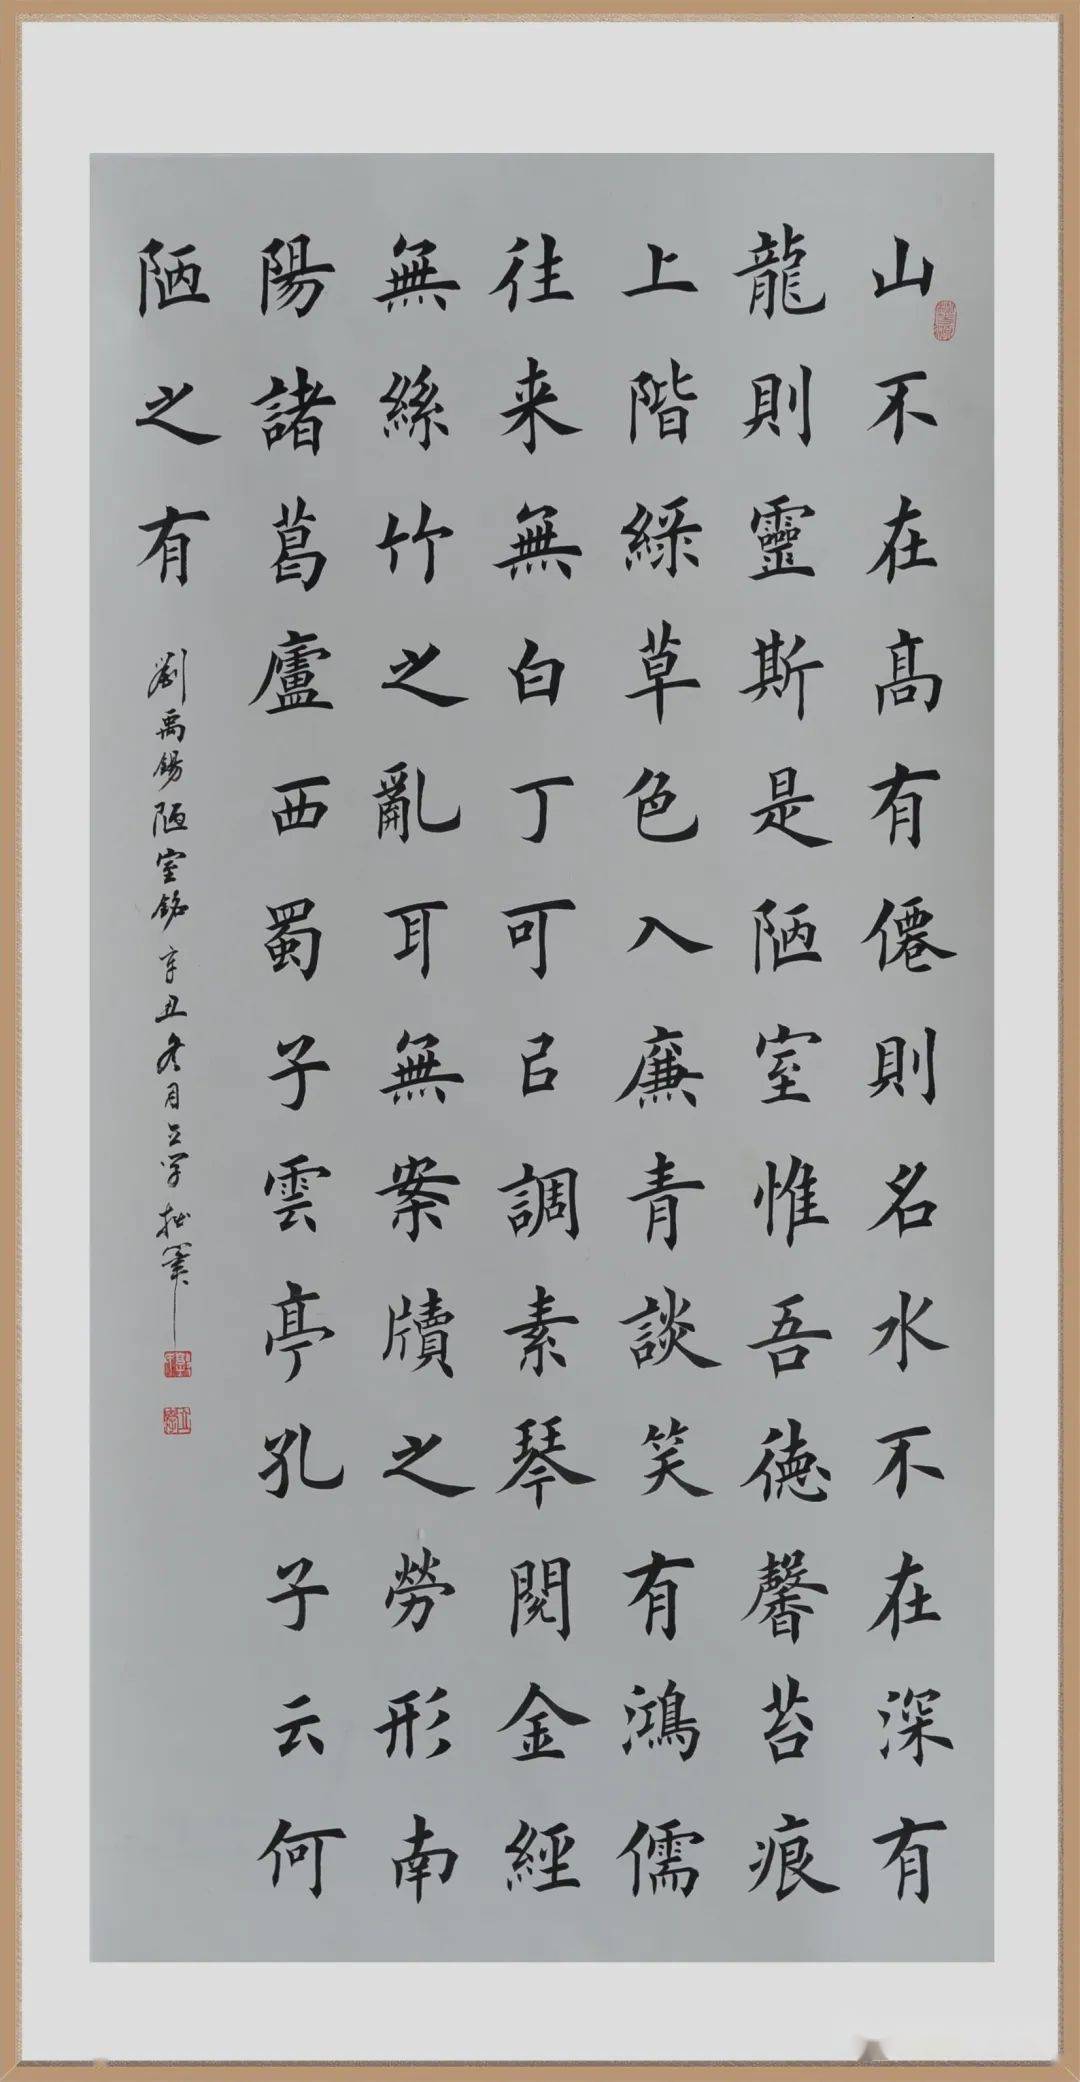 山不在髙有僊則名水不在深有
龍則靈斯是陋室惟吾徳馨苔痕
上階綠草色入廉青談笑有鴻儒
往来無白丁可㠯調素琴閱金經
無絲竹之亂耳無案牘之勞形南
陽諸葛廬西蜀子雲亭孔子云何
陋之有
劉禹錫陋室銘辛丑冬月立学拙筆